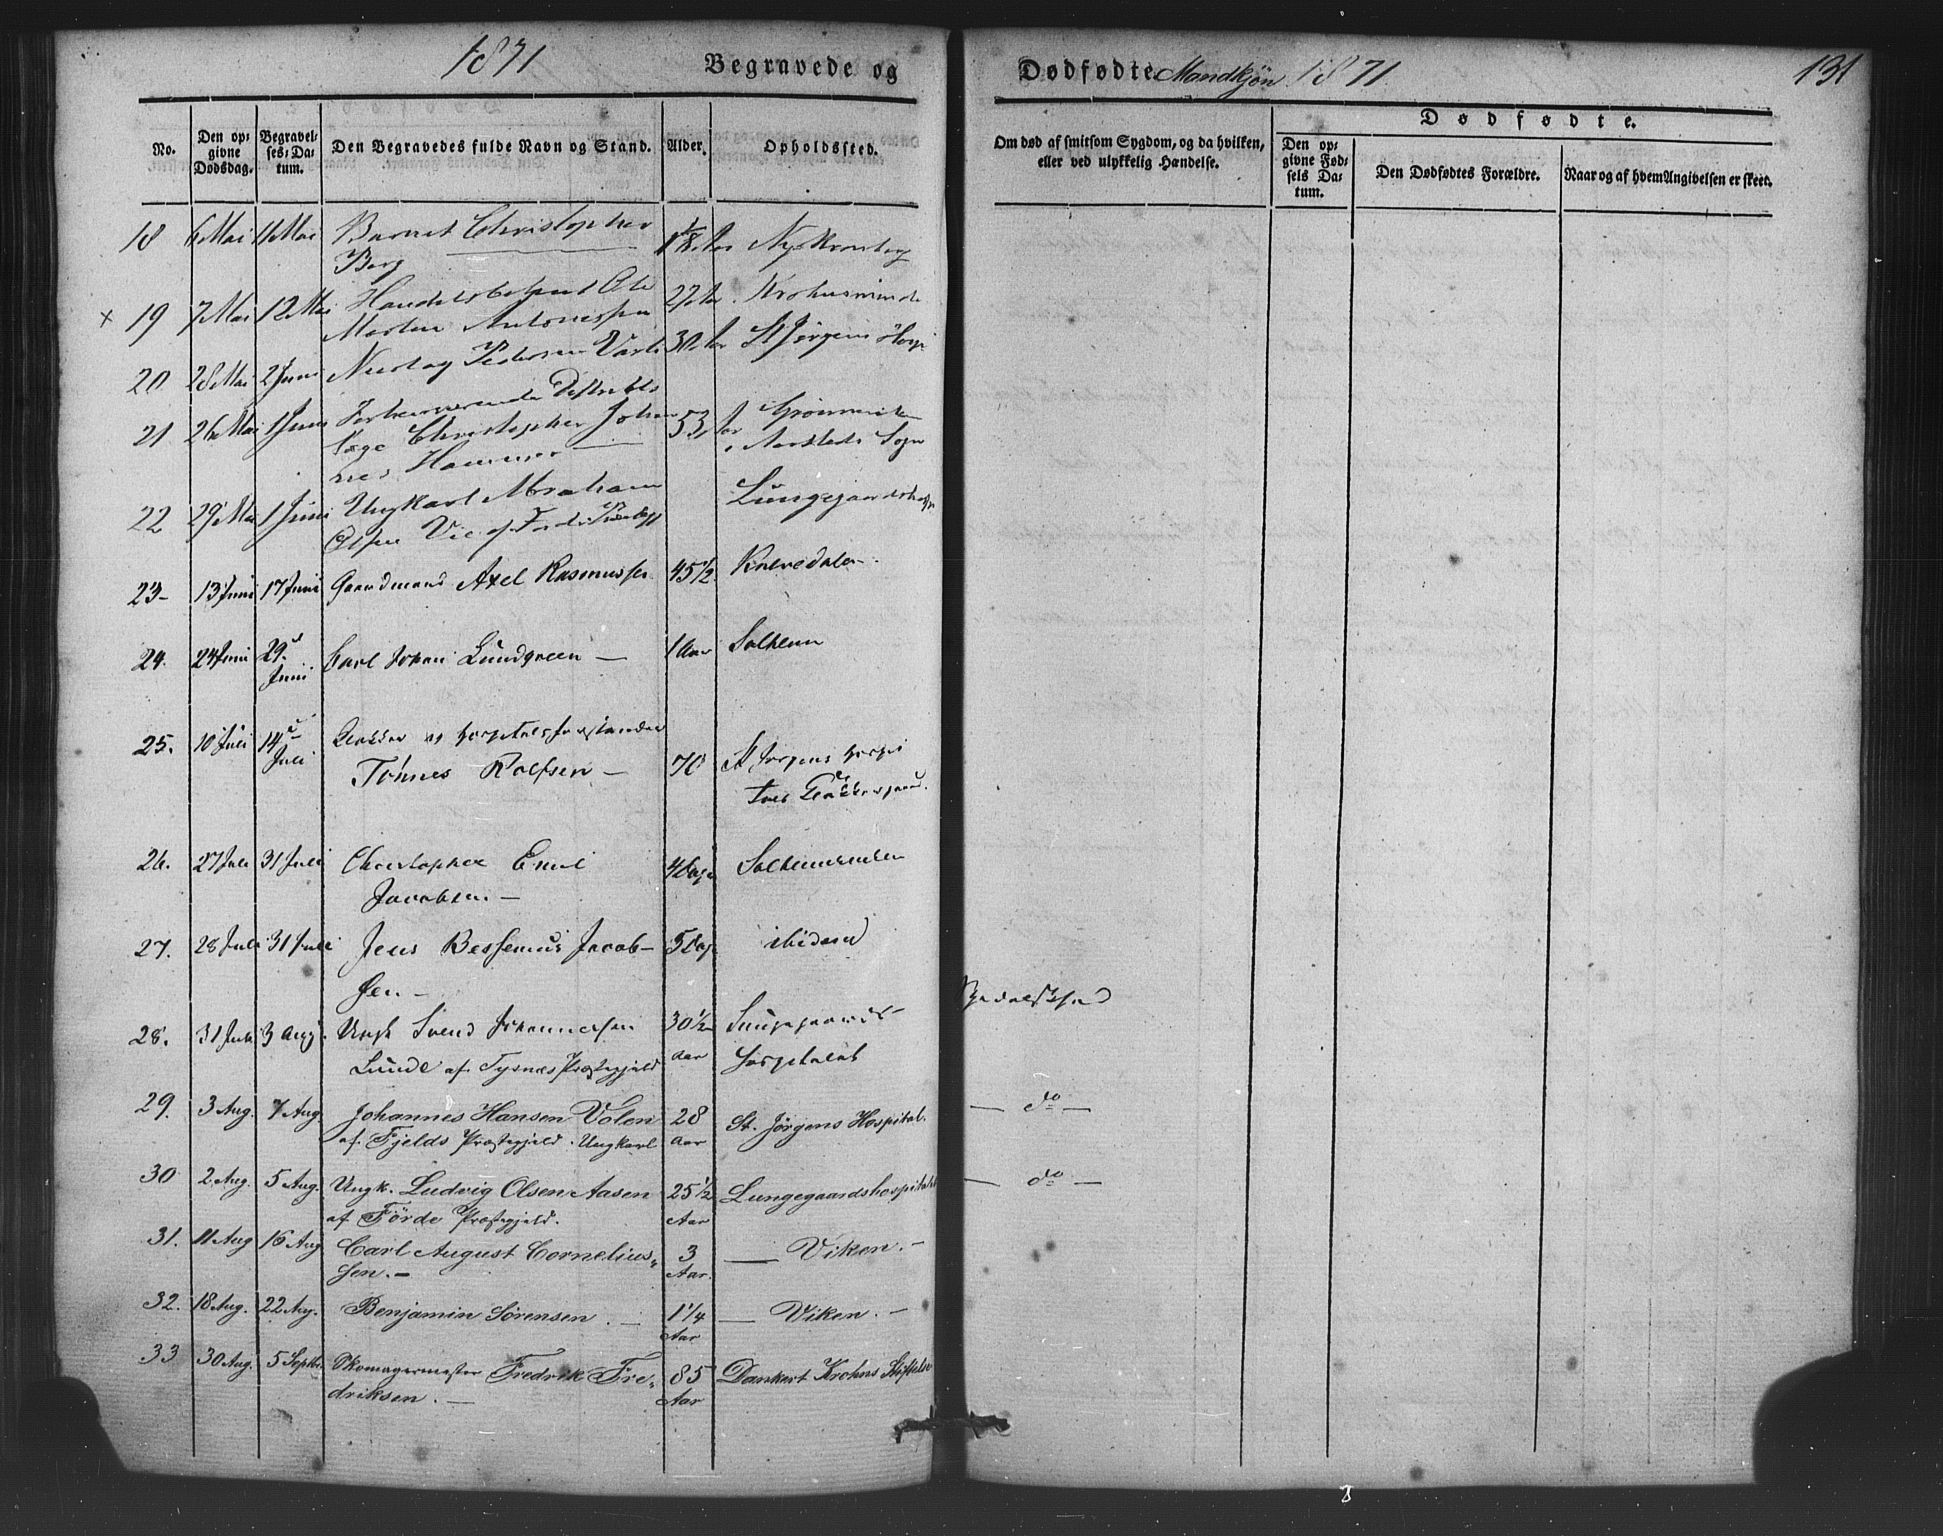 1871 Begravede og Dødfødte Mandkjøn 1871 131
No. Den opgivne Dødsdag. Begravelses-Datum. Den Begravedes fulde Navn og Stand. Alder. Opholdssted. Om død af smitsom Sygdom, og da hvilken, eller ved ulykkelig Hændelse. Dødfødte.
Den opgivne Fødsels Datum. Den Dødfødtes Forældre. Naar og af hvem Angivelsen er skeet.
18 6 Mai 11 Mai Barnet Christopher
Berg
× 19 7 Mai 12 Mai Ole 27 Aar
Morten Antonessen
20 28 Mai 2 Juni Pedersen 30 Aar St Jørgens Hosp
21 26 Mai 1 Juni Distrikts
læge Christopher Johan 53 Aar
nes Hammer Aarstads Sogn
22 29 Mai 1 Juni Ungkarl Abraham Lungegaardshosp
Olsen Vie af
23- 13 Juni 17 Juni Gaardmand Axel Rasmussen 45 1/2
24. 24 Juni 29. Juni Carl Johan Lundgreen — 1 Aar Solheim
25. 10 Juli 14 Juli Klokker og Hospitalsforstander
Tönnes Rolfsen — 70 St Jørgens Hospi
tals Klokkergaard.
26. 27 Juli 31 Juli Christopher Emil 4 Dage
Jacobsen. —
27. 28 Juli 31 Juli Jens Jacob- 5 Dag ibidem
sen —
28. 31 Juli 3 Aug. Ungk Svend Johannessen 30 1/2 Aar Lungegaards- Spedalskhed
Lunde af Tysnes Præstegjeld Hospitalet
29. 3 Aug. 7 Aug. Johannes Hansen Volen 28 Aar St. Jørgens Hospital. — do —
af Fjelds Præstegjeld. Ungkarl
30 2 Aug. 5 Aug. Ungk. Ludvig Olsen Aasen 25 1/2 Aar Lungegaardshospitalet — do —
af Förde Præstegjeld.
31. 11 Aug 16 Aug Carl August Cornelius- 3 Aar. — Viken. —
sen. —
32. 18 Aug. 22 Aug. Benjamin Sörensen. — 1 1/4 Aar — Viken. —
33 30 Aug. 5 Septbr Skomagermester Fredrik Fre- 85 Aar Dankert Krohns Stiftelse
driksen. —